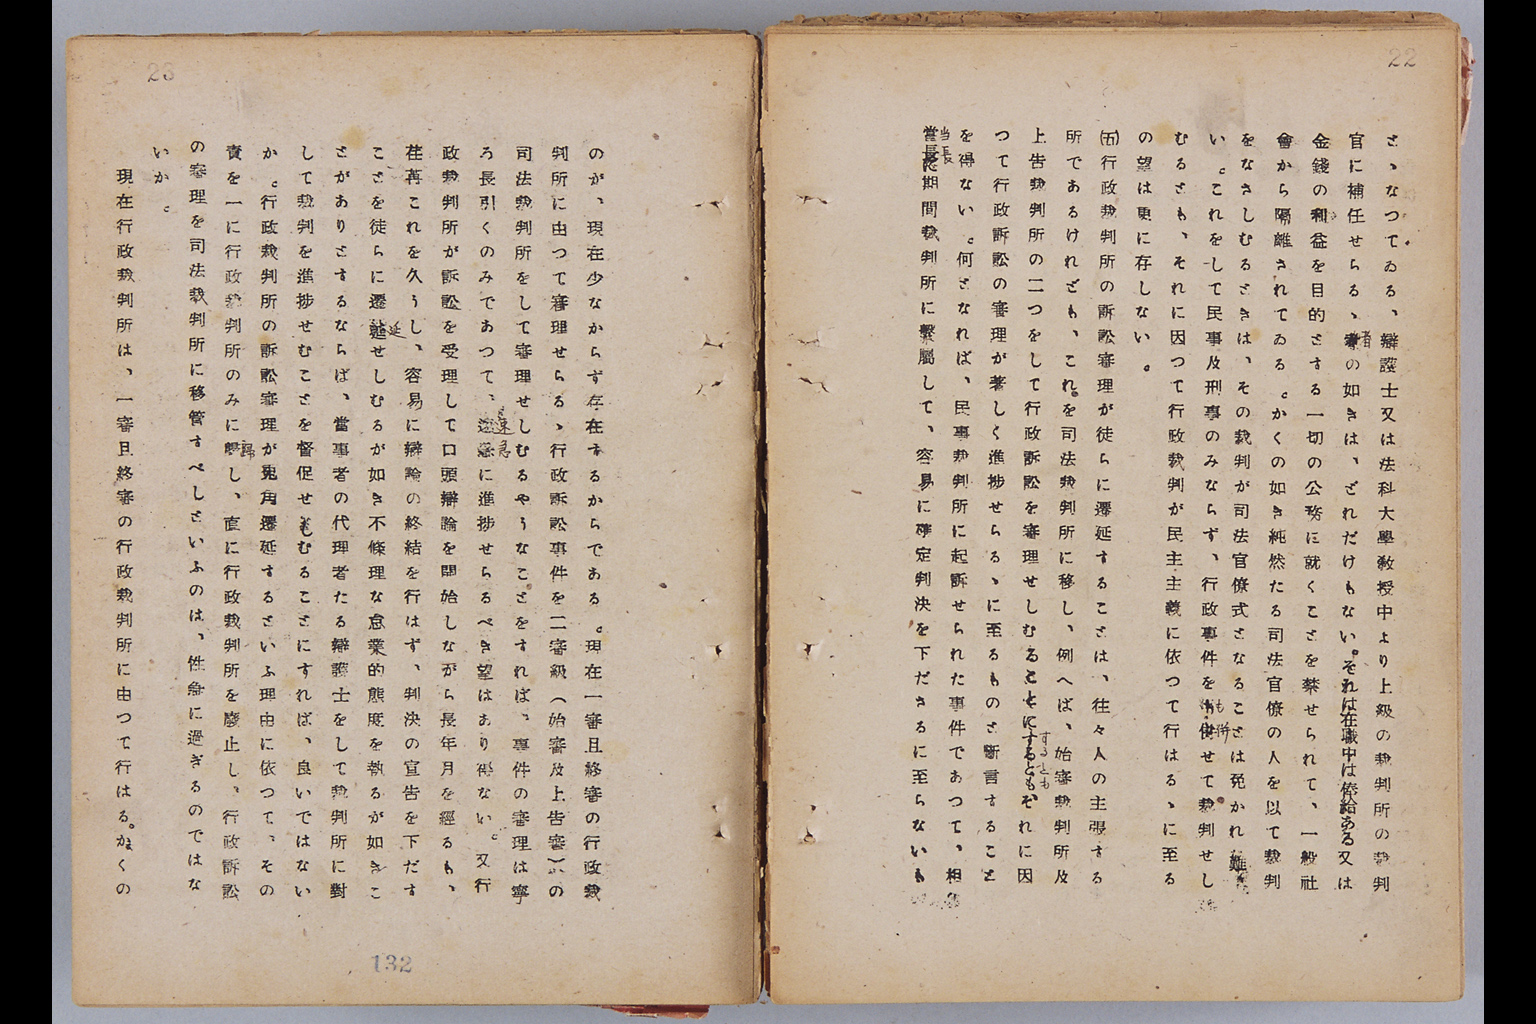 22
とゝなつてゐる、辯護士又は法科大學敎授中より上級の裁判所の裁判
官に補任せらるゝ者の如きは、どれだけもない。それは在職中は俸給ある又は
金錢の利益を目的とする一切の公務に就くことを禁せられて、一般社
會から隔離されてゐる。かくの如き純然たる司法官僚の人を以て裁判
をなさしむるときは、その裁判が司法官僚式となることは免かれ難
い。これをして民事及刑事のみならず、行政事件をも併せて裁判せし
むるとも、それに因つて行政裁判が民主主義に依つて行はるゝに至る
の望は更に存しない。
㈤行政裁判所の訴訟審理が徒らに遷延することは、往々人の主張する
所であるけれども、これを司法裁判所に移し、例へば、始審裁判所及
上告裁判所の二つをして行政訴訟を審理せしむることにするとも、それに因
つて行政訴訟の審理が著しく進捗せらるゝに至るものと斷言すること
を得ない。何となれば、民事裁判所に起訴せられた事件であつて、相
當長期間裁判所に繫屬して、容易に確定判決を下ださるに至らないも
23
のが、現在少なからず存在するからである。現在一審且終審の行政裁
判所に由つて審理せらるゝ行政訴訟事件を二審級(始審及上告審)の
司法裁判所をして審理せしむるやうなことをすれば、事件の審理は寧
ろ長引くのみであつて、速急に進捗せらるべき望はあり得ない。又行
政裁判所が訴訟を受理して口頭辯論を開始しながら長年月を經るも、
荏苒これを久うし、容易に辯論の終結を行はず、判決の宣告を下だす
ことを徒らに遷延せしむるが如き不條理な怠業的態度を執るが如きこ
とがありとするならば、當事者の代理者たる辯護士をして裁判所に對
して裁判を進捗せむことを督促せむることにすれば、良いではない
か。行政裁判所の訴訟審理が兎角遷延するといふ理由に依つて、その
責を一に行政裁判所のみに歸し、直に行政裁判所を廢止し、行政訴訟
の審理を司法裁判所に移管すべしといふのは、性急に過ぎるのではな
いか。
現在行政裁判所は、一審且終審の行政裁判所に由つて行はる。かくの
132